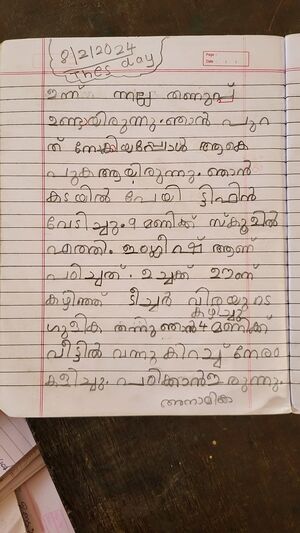 8/2/2024
Thes day
Page :
Date :
ഇന്ന് നല്ല തണുപ്പ്
ഉണ്ടായിരുന്നു. ഞാൻ പുറ
ത് നോക്കിയപ്പോൾ ആകെ
പുക ആയിരുന്നു. ഞാൻ
കടയിൽ പേയി ടിഫിൻ
വേടിച്ചു. 9 മണിക്ക് സ്കൂളിൽ
എത്തി. ഇംഗ്ലീഷ് ആണ്
പഠിച്ചത്. ഉച്ചക്ക് ഊണ്
കഴിഞ്ഞ് ടീച്ചർ വിരയുടെ
കഴിച്ചു
ഗുളിക തന്നു ഞാൻ 4 മണിക്ക്
വീട്ടിൽ വന്നു കിറച്ച് നേരം
കളിച്ചു. പഠിക്കാൻ ഇരുന്നു.
അനാമിക